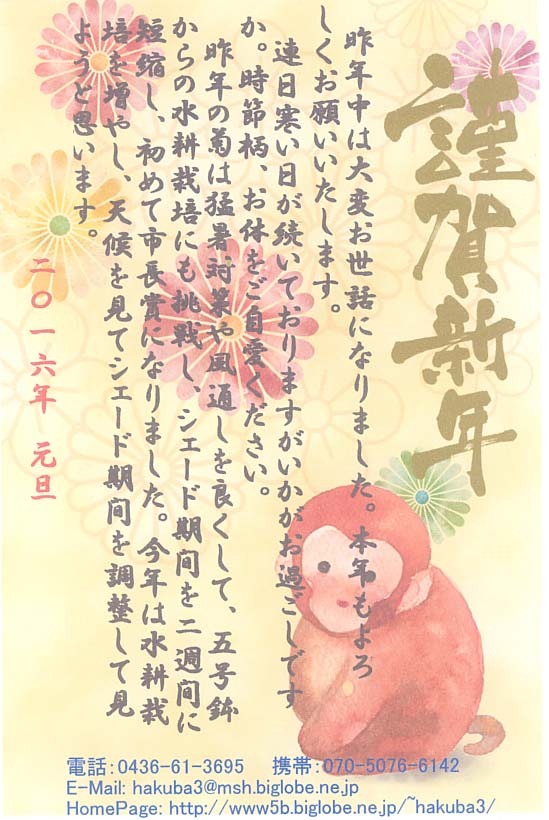 謹賀新年
昨年中は大変お世話になりました。本年もよろ
しくお願いいたします。
連日寒い日が続いておりますがいかがお過ごしです
か。時節柄、お体をご自愛ください。
昨年の菊は猛暑対策や風通しを良くして、五号鉢
からの水耕栽培にも挑戦し、シェード期間を二週間に
短縮し、初めて市長賞になりました。今年は水耕栽
培を増やし、天候を見てシェード期間を調整して見
ようと思います。
二〇一六年 元旦
電話：0436-61-3695 携帯：070-5076-6142
E-Mail: hakuba3@msh.biglobe.ne.jp
HomePage: http://www5b.biglobe.ne.jp/~hakuba3/